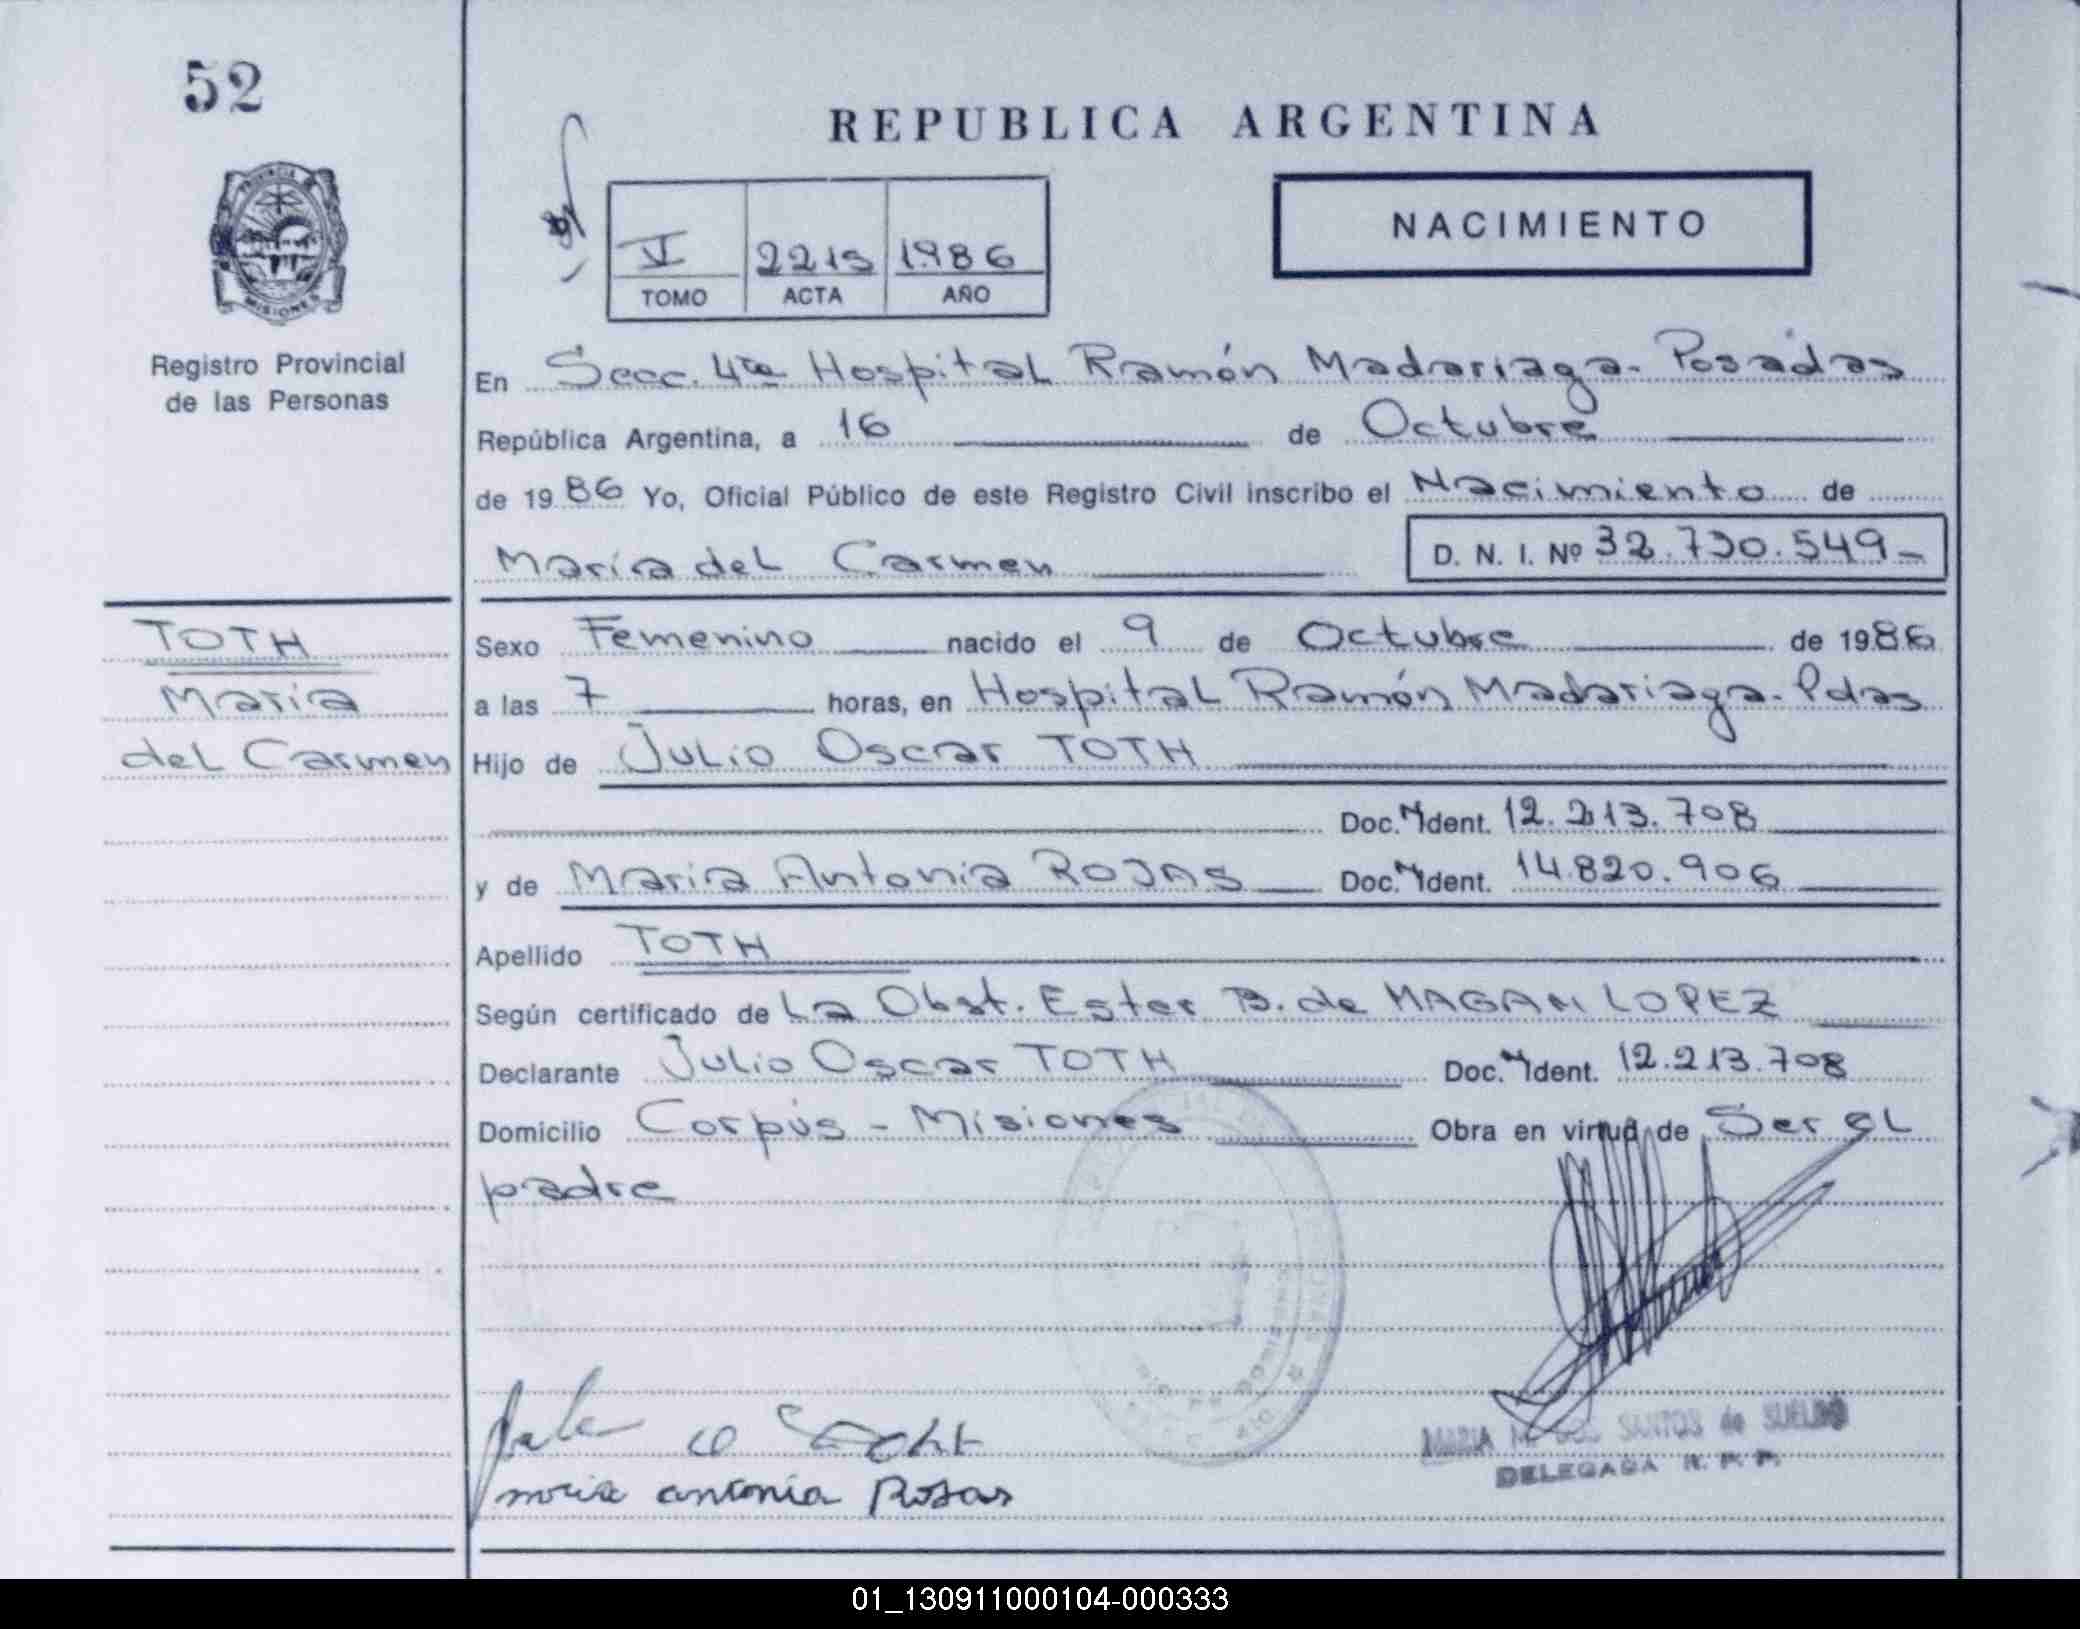 52
REPUBLICA ARGENTINA
NACIMIENTO
VI 2215 1986
TOMO ACTA AÑO
PROVINCIA DE
MISIONES
Registro Provincial
de las Personas
En Secc. 4ta Hospital Ramón Madariaga - Posadas
República Argentina, a 16 de Octubre
de 1986 Yo, Oficial Público de este Registro Civil inscribo el Nacimiento de
María del Carmen D. N. I. Nº 32.730.549-
TOTH
María
del Carmen
Sexo Femenino nacido el 9 de Octubre de 1986
a las 7 horas, en Hospital Ramón Madariaga - Pdas
Hijo de Julio Oscar TOTH
Doc. Ident. 12.213.708
y de María Antonia ROJAS Doc. Ident. 14.820.906
Apellido TOTH
Según certificado de La Obst. Ester B. de MAGAN LOPEZ
Declarante Julio Oscar TOTH Doc. Ident. 12.213.708
Domicilio Corpus - Misiones Obra en virtud de Ser el
padre
maria antonia Rojas
MARIA DOS SANTOS de SUELDO
DELEGADA R. P. P.
01_130911000104-000333